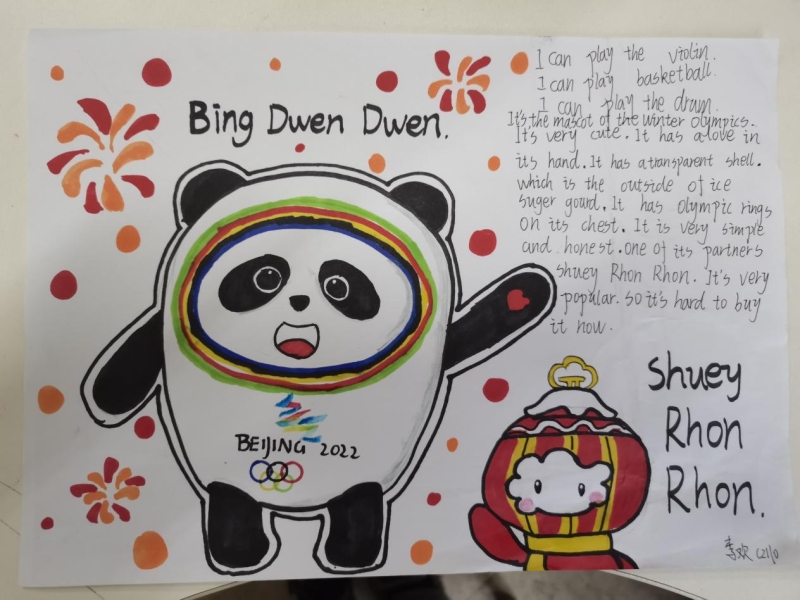 Bing Dwen Dwen.
I can play the violin.
I can play basketball.
I can play the drum.
It's the mascot of the winter olympics.
It's very cute. It has a love in
its hand. It has a transparent shell.
which is the outside of ice
suger gourd. It has olympic rings
on its chest. It is very simple
and honest. one of its partners
shuey Rhon Rhon. It's very
popular. so it's hard to buy
it now.
BEIJING 2022
Shuey
Rhon
Rhon.
李欢